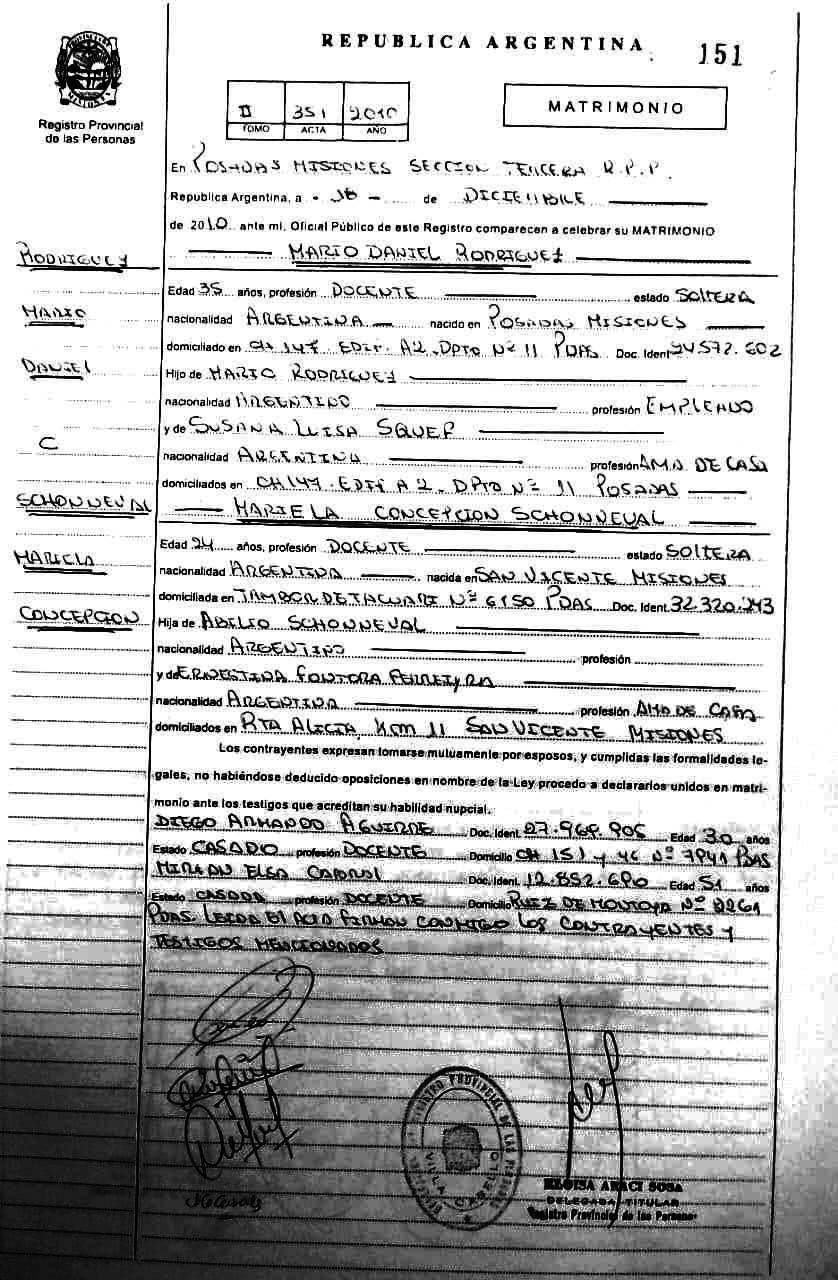 REPUBLICA ARGENTINA
151
Registro Provincial
de las Personas
II 351 2010
TOMO ACTA AÑO
MATRIMONIO
En POSADAS MISIONES SECCION TERCERA R.P.P.
Republica Argentina, a de DICIEMBRE
de 2010 ante mi, Oficial Público de este Registro comparecen a celebrar su MATRIMONIO
RODRIGUEZ
MARIO DANIEL RODRIGUEZ
Edad 35 años, profesión DOCENTE estado SOLTERA
MARIO
nacionalidad ARGENTINA nacido en POSADAS MISIONES
domiciliado en CH 147 EDIF. A2 DPTO Nº 11 PDAS. Doc. Ident 24.572.602
DANIEL
Hijo de MARIO RODRIGUEZ
nacionalidad ARGENTINO profesión EMPLEADO
y de SUSANA LUISA
C
nacionalidad ARGENTINA profesión AMA DE CASA
domiciliados en CH 147 EDIF A 2 DPTO Nº 11 POSADAS
SCHONNEVAL
MARIELA CONCEPCION SCHONNEVAL
Edad 24 años, profesión DOCENTE estado SOLTERA
MARIELA
nacionalidad ARGENTINA nacida en SAN VICENTE MISIONES
domiciliada en TAMBOR DE TACUARI Nº 6150 PDAS Doc. Ident. 32.320.243
CONCEPCION
Hija de ABILIO SCHONNEVAL
nacionalidad ARGENTINO profesión
y de ERNESTINA FONTORA FERREYRA
nacionalidad ARGENTINA profesión AMA DE CASA
domiciliados en RTA ALICIA KM 11 SAN VICENTE MISIONES
Los contrayentes expresan tomarse mutuamente por esposos, y cumplidas las formalidades le-
gales, no habiéndose deducido oposiciones en nombre de la Ley procedo a declararlos unidos en matri-
monio ante los testigos que acreditan su habilidad nupcial.
DIEGO ARMANDO AGUIRRE Doc. Ident. 27.968.905 Edad 30 años
Estado CASADO profesión DOCENTE Domicilio CH 151 y Nº 7941 PDAS
MIRIAN ELSA CABRAL Doc. Ident. 12.852.690 Edad 51 años
Estado CASADA profesión DOCENTE Domicilio RUIZ DE MONTOYA Nº 2261
PDAS. LEIDA EL ACTA FIRMAN CONMIGO LOS CONTRAYENTES Y
TESTIGOS MENCIONADOS
REGISTRO PROVINCIAL DE LAS PERSONAS
VILLA CABELLO
ELOISA ARACI SOSA
DELEGADA TITULAR
Registro Provincial de las Personas